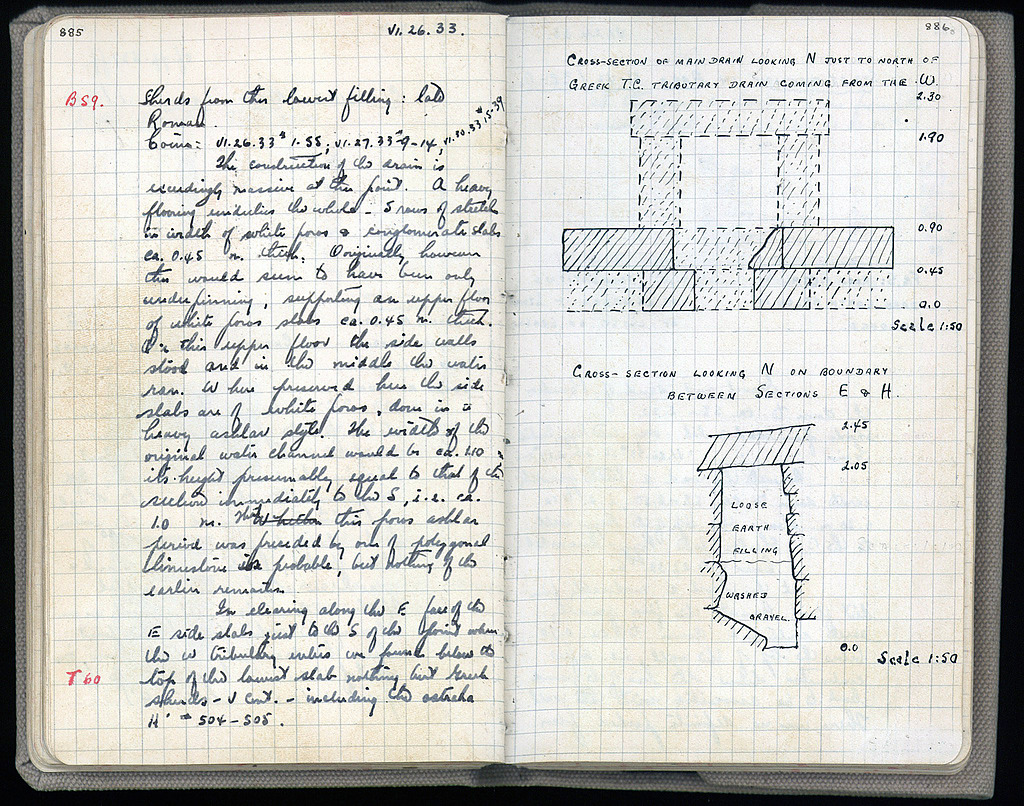 885
VI. 26. 33.
B 59.
Sherds from this lowest filling: late
Roman.
Coins: VI.26.33 # 1-55; VI.27.33 # 9-14, VI.30.33 # 15-39
The construction of the drain is
exceedingly massive at this point. A heavy
flooring underlies the whole - 5 rows of stretch
in width of white poros & conglomerate slabs
ca. 0.45 m. thick. Originally however
this would seem to have been only
underpinning, supporting an upper floor
of white poros slabs ca. 0.45 m. thick.
On this upper floor the side walls
stood and in the middle the water
ran. Where preserved here the side
slabs are of white poros, done in a
heavy ashlar style. The width of the
original water channel would be ca. 1.10
its height presumably equal to that of the
section immediately to the S, i.e. ca.
1.0 m. That whether this poros ashlar
period was preceded by one of polygonal
limestone is probable, but nothing of the
earlier remains.
In clearing along the E face of the
E side slabs just to the S of the point where
the W tributary enters we found below the
T 60
top of the lowest slab nothing but Greek
sherds - V cent. - including the ostraka
H' # 504-505.
886.
CROSS-SECTION OF MAIN DRAIN LOOKING N JUST TO NORTH OF
GREEK T.C. TRIBUTARY DRAIN COMING FROM THE W.
2.30
1.90
0.90
0.45
0.0
Scale 1:50
CROSS-SECTION LOOKING N ON BOUNDARY
BETWEEN SECTIONS E & H.
2.45
2.05
LOOSE
EARTH
FILLING
WASHED
GRAVEL.
0.0
Scale 1:50